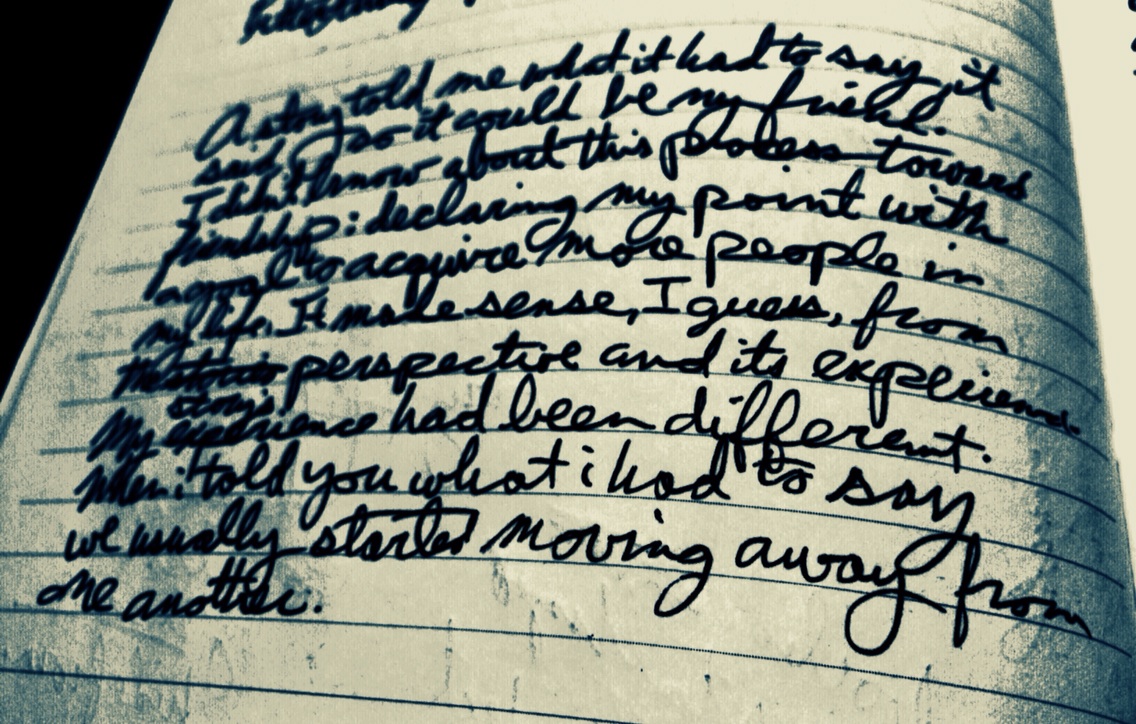 A story told me what it had to say, it
said, so it could be my friend.
I didn't know about this process toward
friendship: declaring my point with
a goal to acquire more people in
my life. It made sense, I guess, from
the story's perspective and its experience.
My experience had been different.
When i told you what i had to say
we usually started moving away from
one another.